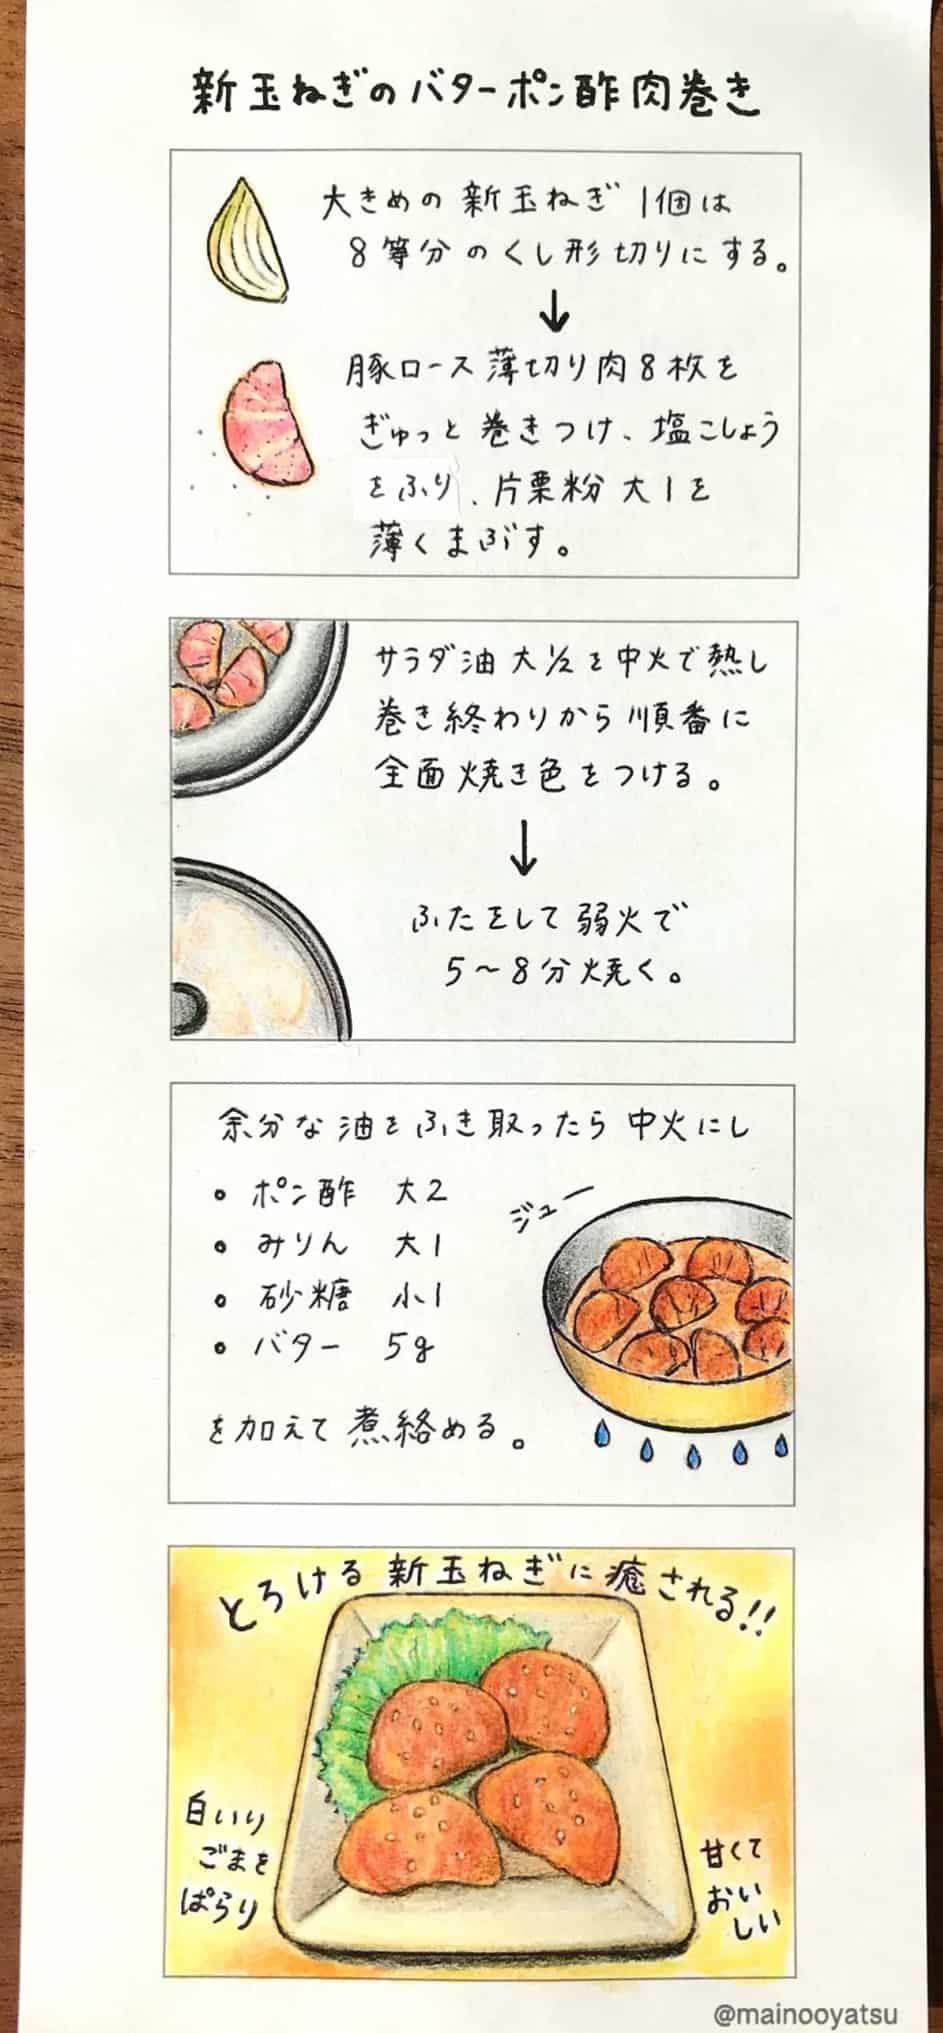 新玉ねぎのバターポン酢肉巻き
大きめの新玉ねぎ 1個は
8等分のくし形切りにする。
↓
豚ロース薄切り肉8枚を
ぎゅっと巻きつけ、塩こしょう
をふり、片栗粉大1を
薄くまぶす。
サラダ油大1/2を中火で熱し
巻き終わりから順番に
全面焼き色をつける。
↓
ふたをして弱火で
5〜8分焼く。
余分な油をふき取ったら中火にし
• ポン酢 大2
• みりん 大1
• 砂糖 小1
• バター 5g
ジュー
を加えて煮絡める。
とろける新玉ねぎに癒される!!
白いり
ごまを
ぱらり
甘くて
おい
しい
@mainooyatsu